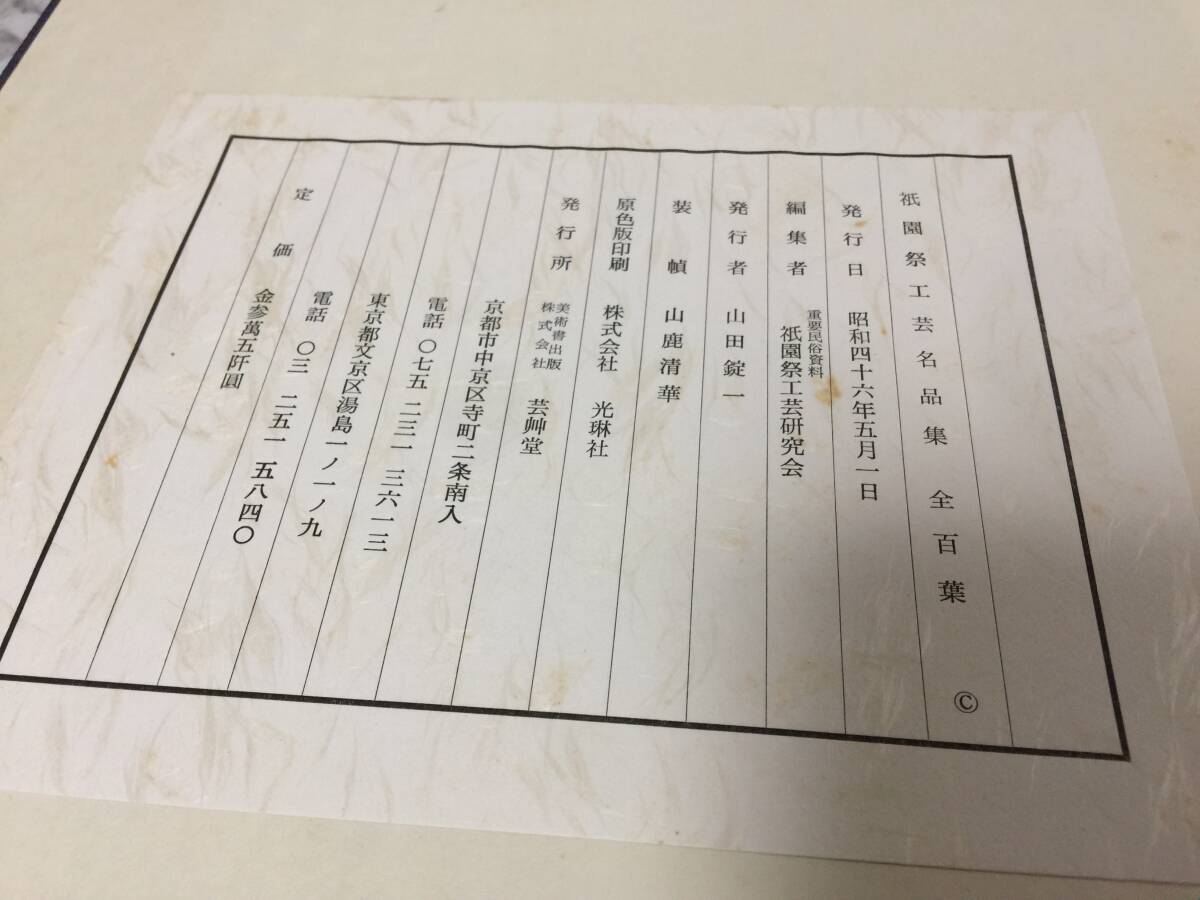 祇園祭工芸名品集 全百葉 ©
発行日 昭和四十六年五月一日
編集者 重要民俗資料 祇園祭工芸研究会
発行者 山田錠一
装幀 山鹿清華
原色版印刷 株式会社 光琳社
発行所 美術書出版 株式会社 芸艸堂
京都市中京区寺町二条南入
電話 〇七五 二三一 三六一三
東京都文京区湯島一ノ一ノ九
電話 〇三 二五一 五八四〇
定価 金参萬五阡圓